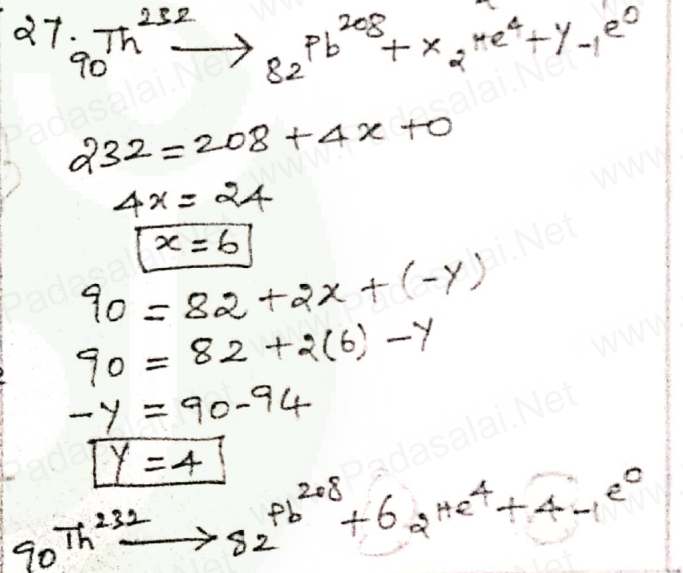 27. ₉₀Th²³² ⟶ ₈₂Pb²⁰⁸ + x ₂He⁴ + y ₋₁e⁰
232 = 208 + 4x + 0
4x = 24
x = 6
90 = 82 + 2x + (-y)
90 = 82 + 2(6) - y
-y = 90 - 94
y = 4
₉₀Th²³² ⟶ ₈₂Pb²⁰⁸ + 6 ₂He⁴ + 4 ₋₁e⁰
www.Padasalai.Net